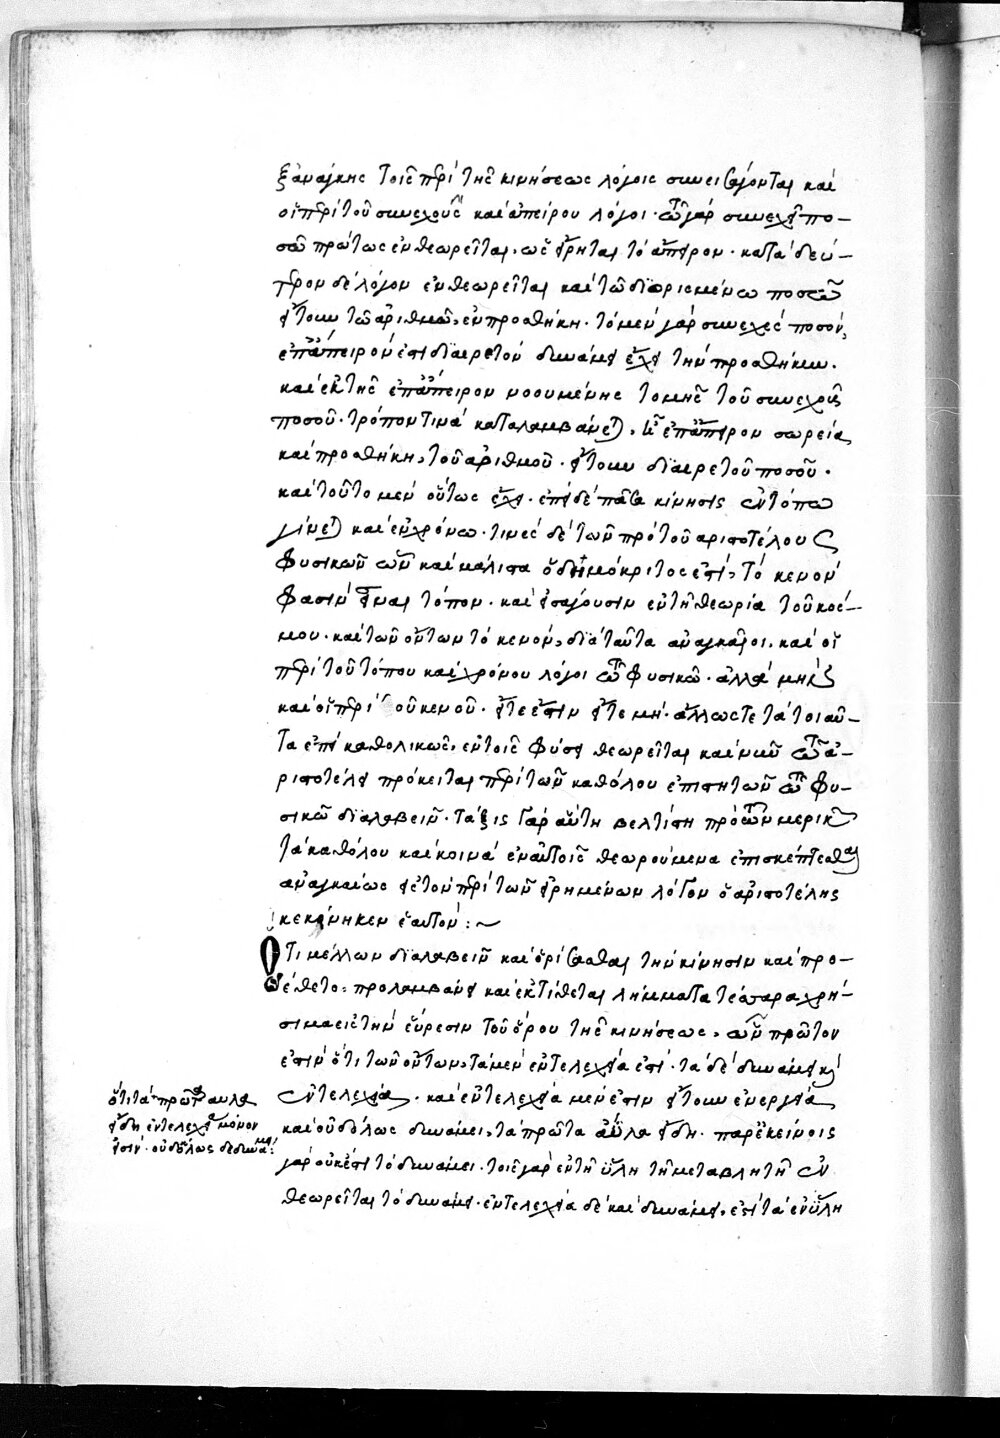 ξ ἀνάγκης τοῖς περὶ τῆς κινήσεως λόγοις συνεισάγονται καὶ
οἱ περὶ τοῦ συνεχοῦς καὶ ἀπείρου λόγοι· τῶ γὰρ συνεχεῖ πο-
σῶ πρώτως ἐνθεωρεῖται, ὡς εἴρηται τὸ ἄπειρον· κατὰ δεύ-
τερον δὲ λόγον ἐνθεωρεῖται καὶ τῶ διωρισμένω ποσῶ
ἤτοι τῶ ἀριθμῶ, ἐν προσθήκη· τὸ μὲν γὰρ συνεχὲς ποσὸν,
ἐπ' ἄπειρον ἐστὶ διαιρετὸν δυνάμει ἔχει τὴν προσθήκην·
καὶ ἐκ τῆς ἐπ' ἄπειρον νοουμένης τομῆς τοῦ συνεχοῦς
ποσοῦ· τρόπον τινὰ καταλαμβάνεται, ἡ ἐπ' ἄπειρον σωρεία
καὶ προσθήκη, τοῦ ἀριθμοῦ· ἤτοι διαιρετοῦ ποσοῦ·
καὶ τοῦτο μὲν οὕτως ἔχει· ἐπεὶ δὲ πᾶσα κίνησις ἐν τόπω
γίνεται καὶ ἐν χρόνω· τινὲς δὲ τῶν πρὸ τοῦ ἀριστοτέλους
φυσικῶν ὧν καὶ μάλιστα ὁ δημόκριτος ἐστὶ, τὸ κενὸν
φασὶν εἶναι τόπον· καὶ εἰσάγουσιν ἐν τῆ θεωρία τοῦ κόσ-
μου· καὶ τῶν ὄντων τὸ κενὸν, διὰ ταῦτα ἀναγκαῖοι, καὶ οἱ
περὶ τοῦ τόπου καὶ χρόνου λόγοι τῶ φυσικῶ· ἀλλὰ μὴν
καὶ οἱ περὶ τοῦ κενοῦ· εἴτε ἔστιν εἴτε μή· ἄλλως τε τὰ τοιαῦ-
τα ἐπεὶ καθολικῶς, ἐν τοῖς φύσει θεωρεῖται καὶ νῦν τῶ ἀ-
ριστοτέλει πρόκειται περὶ τῶν καθόλου ἐπιστητῶν τῶ φυ-
σικῶ διαλαβεῖν· τάξις γὰρ αὕτη βελτίστη πρὸ τῶν μερικῶν
τὰ καθόλου καὶ κοινὰ ἐν αὐτοῖς θεωρούμενα ἐπισκέπτεσθαι
ἀναγκαίως εἰς τὸν περὶ τῶν εἰρημένων λόγον ὁ ἀριστοτέλης
κεκίνηκεν ἑαυτόν: ~
Ὅτι μέλλων διαλαβεῖν καὶ ὁρίσασθαι τὴν κίνησιν καὶ προ-
έθετο: προλαμβάνει καὶ ἐκτίθεται λήμματα τέσσαρα χρή-
σιμα εἰς τὴν εὕρεσιν τοῦ ὅρου τῆς κινήσεως, ὧν πρῶτον
ἐστὶν ὅτι τῶν ὄντων, τὰ μὲν ἐντελεχεία ἐστὶ· τὰ δὲ δυνάμει καὶ
ἐντελεχεία· καὶ ἐντελεχεία μέν ἐστιν ἤτοι ἐνεργεία
καὶ οὐδόλως δυνάμει, τὰ πρῶτα ἄϋλα εἴδη· παρ' ἐκείνοις
γὰρ οὐκ ἔστι τὸ δυνάμει· τοῖς γὰρ ἐν τῆ ὕλη τῆ μεταβλητῆ ἐν
θεωρεῖται τὸ δυνάμει· ἐντελεχεία δὲ καὶ δυνάμει, ἐστὶ τὰ ἐν ὕλη
ὅτι τὰ πρῶτα ἄυλα
εἴδη ἐντελεχεία μόνον
εἰσίν· οὐδόλως δὲ δυνάμει: